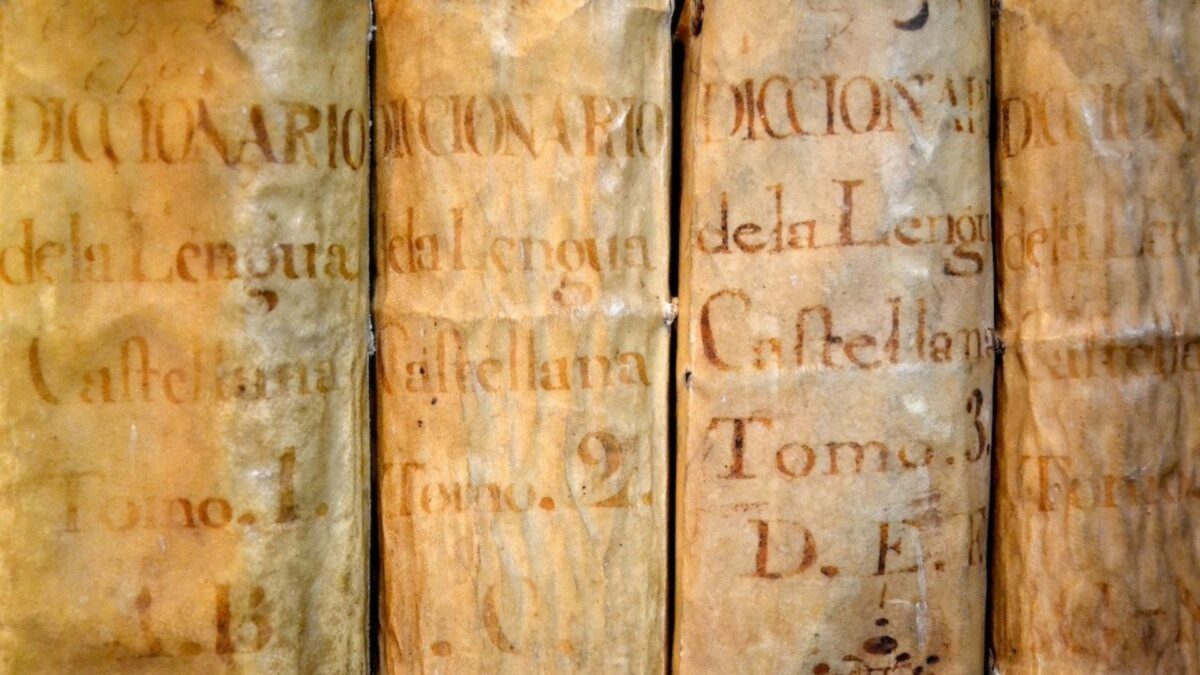 DICCIONARIO
dela Lengua
Caſtellana
Tomo. 1.
A. B
DICCIONARIO
dela Lengua
Caſtellana
Tomo. 2.
. C.
DICCIONAR
dela Lengu
Caſtellan
Tomo. 3.
D. E. F
DICCION
dela Len
Caſtella
Tomo